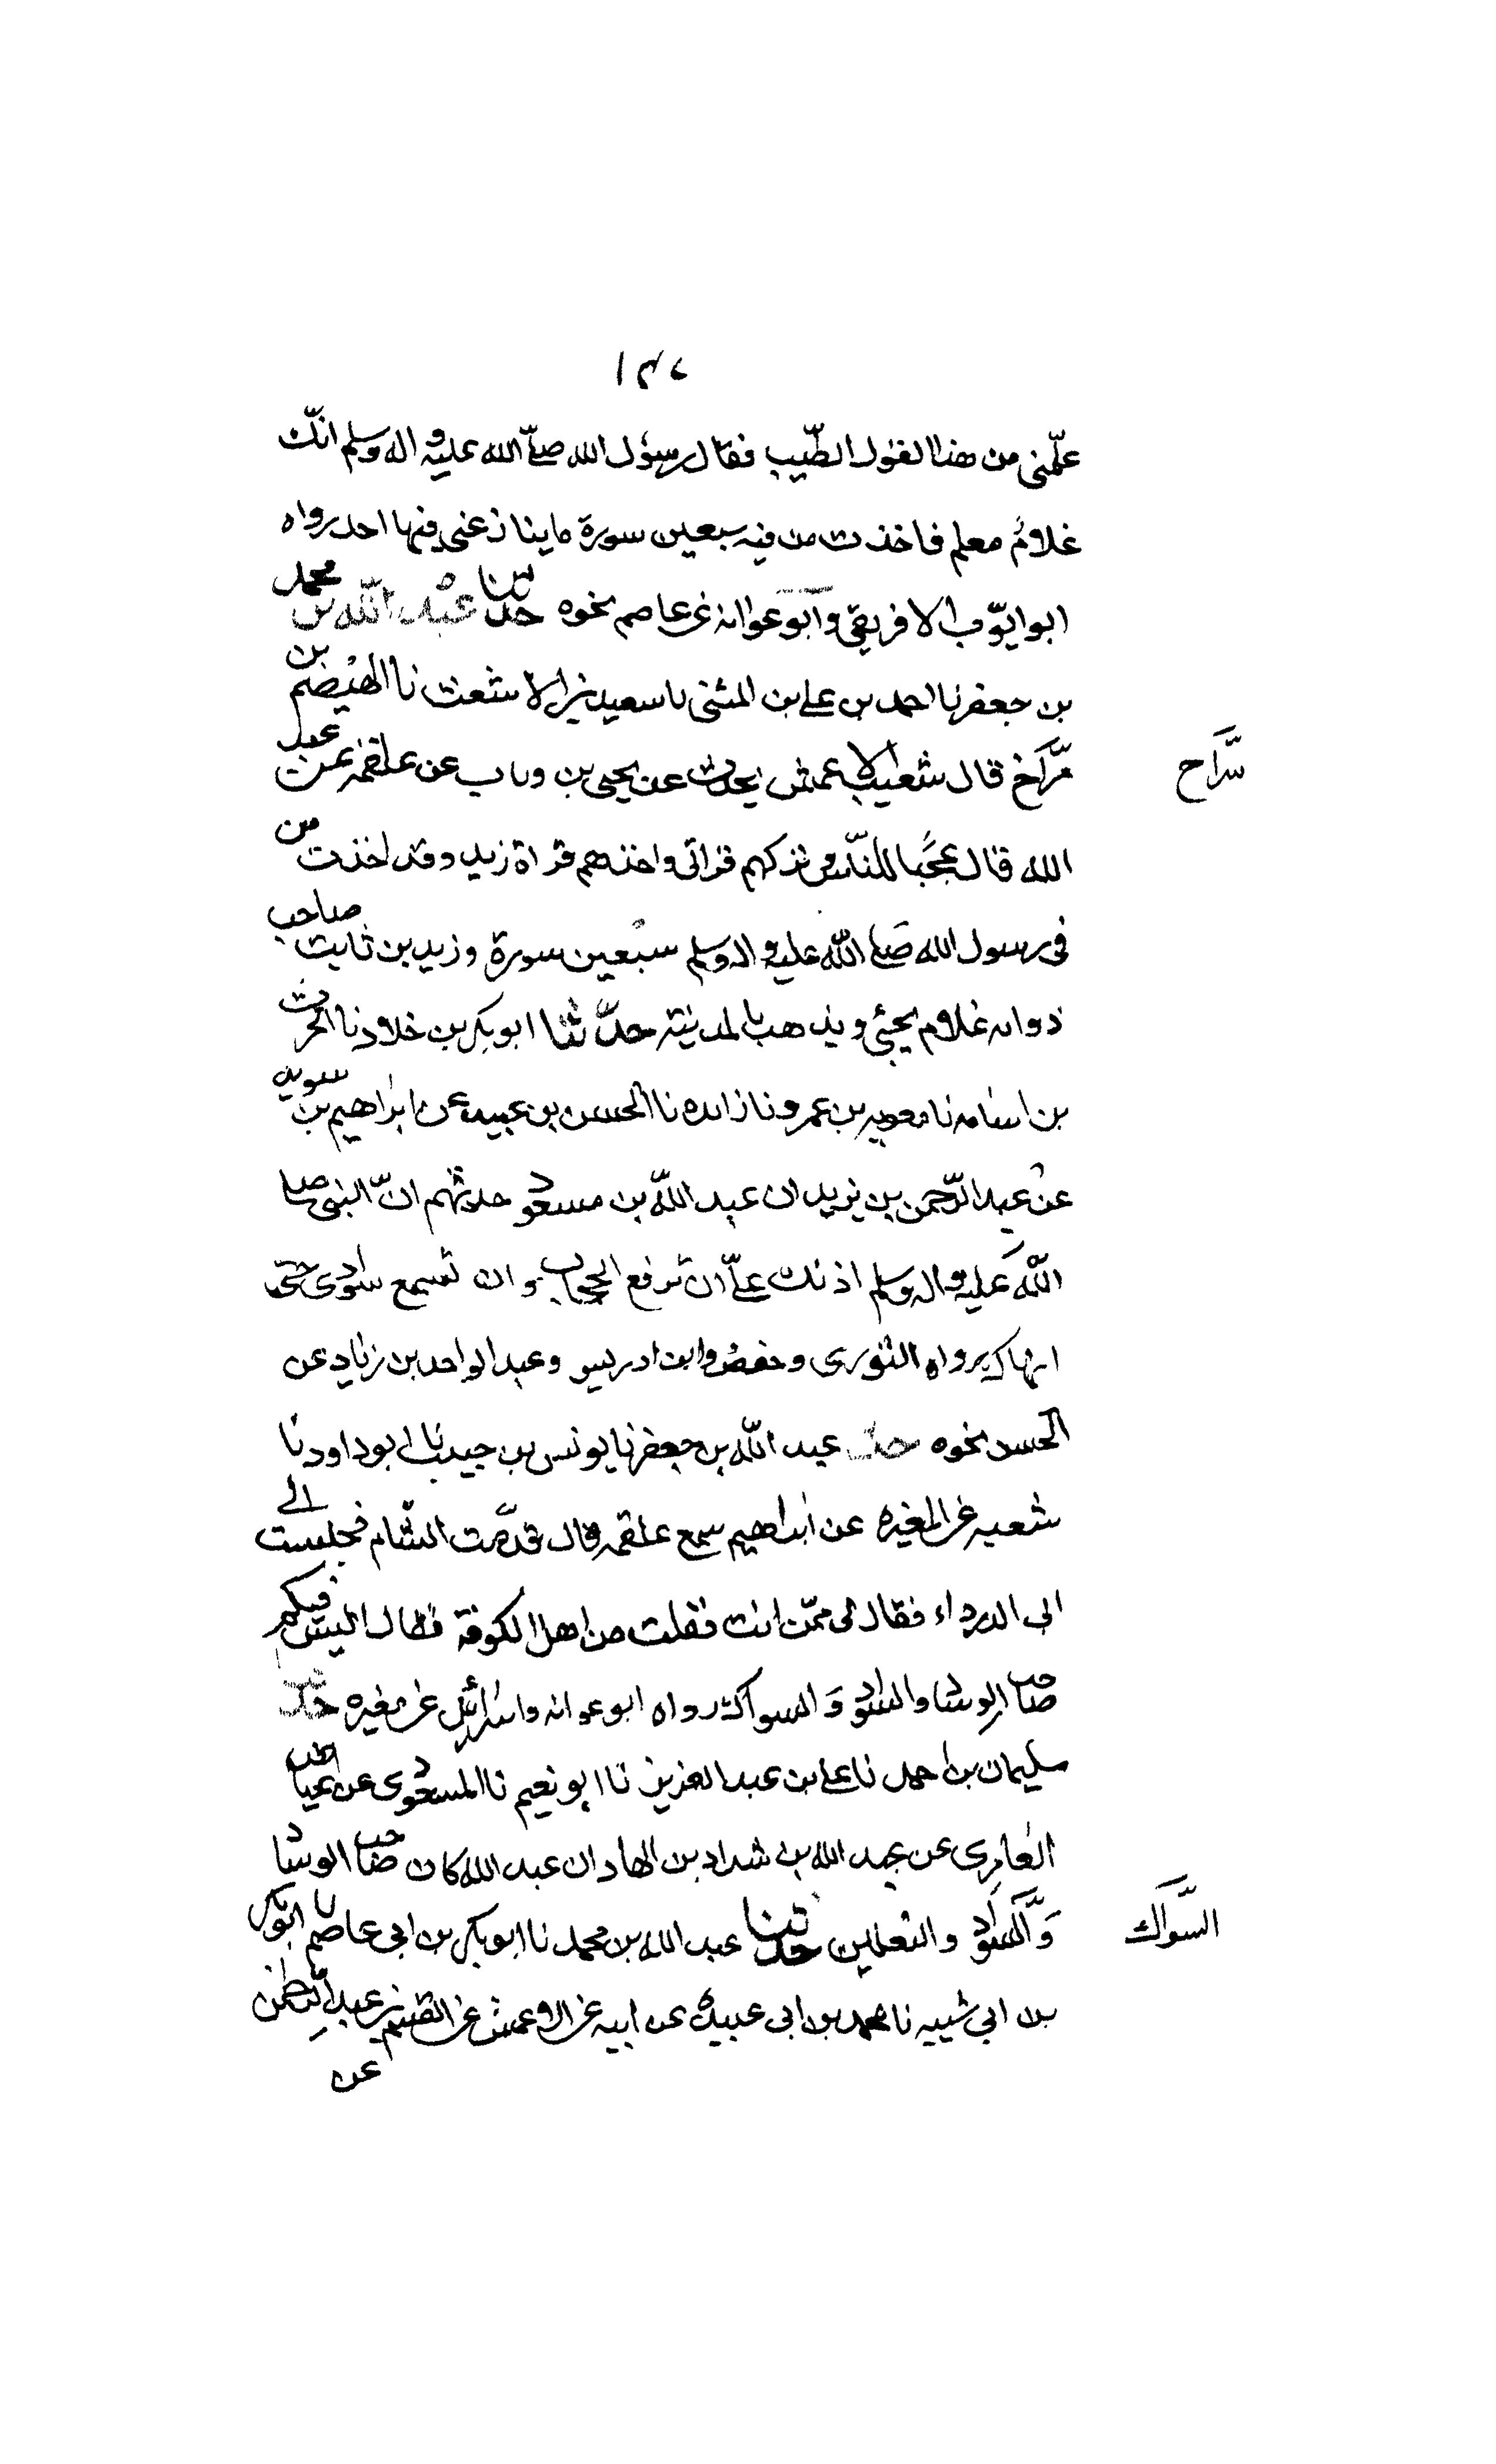 ١٤٧
علّمنى من هذا القول الطّيب فقال رسول الله صلّى الله عليه و اله وسلم انّك
غلام معلم فاخذت من فيه سبعين سورة ما ينازعنى فيها احد رواه
ابو ايّوب الافريقى وابو عوانه عن عاصم نحوه حدثنا عبد الله بن محمد
بن جعفر نا احمد بن على بن المثنى نا سعيد بن الاشعث نا الهيضم بن
مرّاخ قال شعيب الاعمش يحدث عن يحيى بن وباب عن علقمه عن عبد
الله قال عجبًا للنّاس وتركهم قراتى واخذهم قراة زيد وقد اخذت من
فى رسول الله صلى الله عليه و اله وسلم سبعين سورة وزيد بن ثابت صاحب
ذوابه غلام يجيئى ويذهب بالمدينة حدّثنا ابو بكر بن خلاد نا الحرث
بن اسامه نا معويه بن عمرو نا زائده نا الحسن بن عبيد عن ابراهيم بن سويد
عن عبد الرّحمن بن يزيد ان عبد اللّه بن مسعود حدثهم انّ النبى صلى
اللّه عليه و اله وسلم اذنك علىّ ان ترفع الحجاب وان تسمع سوادى حتى
انهاك رواه الثورى وحفص وابن ادريس وعبد الواحد بن زياد عن
الحسن نحوه حدثنا عبد اللّه بن جعفر نا يونس بن حبيب نا ابو داود نا
شعبه عن المغيره عن ابراهيم سمع علقمه قال قدمت الشام فجلست الى
ابى الدرداء فقال لى ممّن انت فقلت من اهل الكوفة فقال اليس فيكم
صاحب الوساد والسواد والسواك رواه ابو عوانه واسرائيل عن مغيره حدثنا
سليمان بن احمد نا على بن عبد العزيز نا ابو نعيم نا المسعودى عن عياش
العامرى عن عبد الله بن شداد بن الهاد ان عبد الله كان صاحب الوساد
والسواد والنعلين حدثنا عبد الله بن محمد نا ابو بكر بن ابى عاصم نا ابو بكر
بن ابى شيبه نا محمد بن ابى عبيده عن ابيه عن الاعمش عن القسم بن عبد الرحمن
عن
سرّاح
السّواك